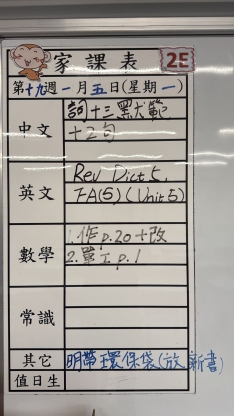 家課表 2E
第十九週一月五日(星期一)
中文 詞十三黑犬範
十2句
英文 Rev Dict 5,
FA(5)(Unit 5)
數學 1.作p.20+改
2.單工p.1
常識
其它 明帶環保袋(放新書)
值日生